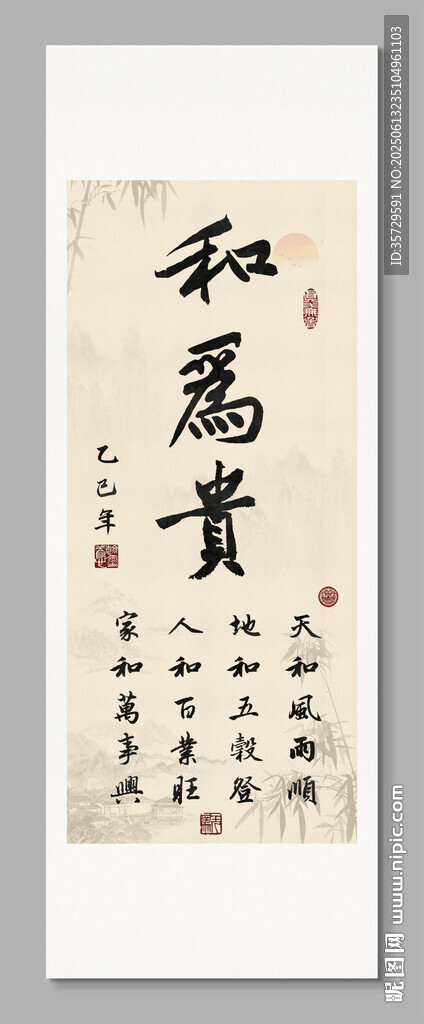 和爲貴
乙巳年
天和風雨順
地和五穀登
人和百業旺
家和萬事興
ID:35729591 NO:20250613235104961103
昵图网 www.nipic.com